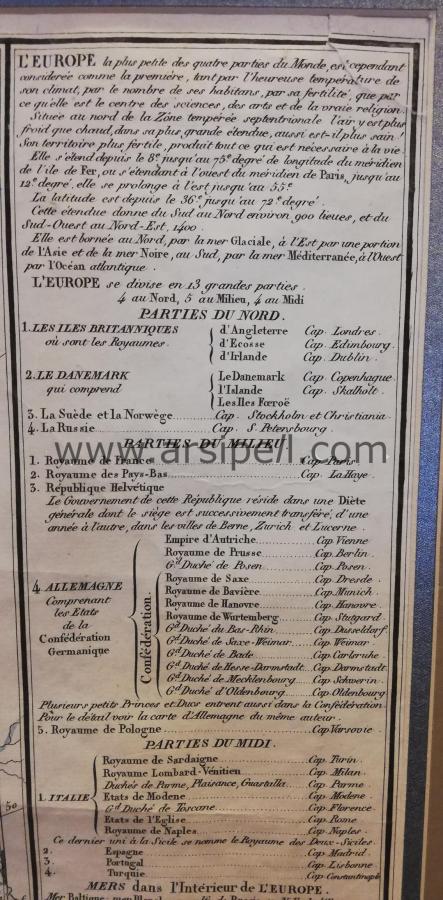 L'EUROPE la plus petite des quatre parties du Monde, est cependant
considerée comme la première, tant par l'heureuse température de
son climat, par le nombre de ses habitans, par sa fertilité, que par
ce qu'elle est le centre des sciences, des arts et de la vraie religion.
Située au nord de la Zône tempérée septentrionale l'air y est plus
froid que chaud, dans sa plus grande étendue, aussi est-il plus sain.
Son territoire plus fertile, produit tout ce qui est nécessaire à la vie.
Elle s'étend depuis le 8.e jusqu'au 75.e degré de longitude du méridien
de l'ile de Fer, ou s'étendant à l'ouest du méridien de Paris, jusqu'au
12.e degré, elle se prolonge à l'est jusqu'au 55.e
La latitude est depuis le 36.e jusqu'au 72.e degré.
Cette étendue donne du Sud au Nord environ 900 lieues, et du
Sud-Ouest au Nord-Est, 1400.
Elle est bornée au Nord, par la mer Glaciale, à l'Est par une portion
de l'Asie et de la mer Noire, au Sud, par la mer Méditerranée, à l'Ouest
par l'Océan atlantique.
L'EUROPE se divise en 13 grandes parties.
4 au Nord, 5 au Milieu, 4 au Midi
PARTIES DU NORD.
1. LES ILES BRITANNIQUES d'Angleterre Cap. Londres.
où sont les Royaumes. d'Ecosse Cap. Edimbourg.
d'Irlande Cap. Dublin.
2. LE DANEMARK Le Danemark Cap. Copenhague.
qui comprend l'Islande Cap. Skalholt.
Les Iles Fœroë
3. La Suède et la Norwège Cap. Stockholm et Christiania.
4. La Russie Cap. S. Petersbourg.
PARTIES DU MILIEU
www.arsipell.com
1. Royaume de France Cap. Paris.
2. Royaume des Pays-Bas Cap. La Haye.
3. République Helvétique
Le Gouvernement de cette République réside dans une Diète
générale dont le siège est successivement transféré, d'une
année à l'autre, dans les villes de Berne, Zurich et Lucerne.
4. ALLEMAGNE
Comprenant
les Etats
de la
Confédération
Germanique
Confédération.
Empire d'Autriche Cap. Vienne
Royaume de Prusse Cap. Berlin.
G.d Duché de Posen Cap. Posen.
Royaume de Saxe Cap. Dresde.
Royaume de Bavière Cap. Munich.
Royaume de Hanovre Cap. Hanovre.
Royaume de Wurtemberg Cap. Stutgard.
G.d Duché du Bas-Rhin Cap. Dusseldorf.
G.d Duché de Saxe-Weimar Cap. Weimar.
G.d Duché de Bade Cap. Carlsruhe.
G.d Duché de Hesse-Darmstadt Cap. Darmstadt.
G.d Duché de Mecklenbourg Cap. Schwerin.
G.d Duché d'Oldenbourg Cap. Oldenbourg
Plusieurs petits Princes et Ducs entrent aussi dans la Confédération.
Pour le détail voir la carte d'Allemagne du même auteur.
5. Royaume de Pologne Cap. Varsovie
PARTIES DU MIDI.
1. ITALIE
Royaume de Sardaigne Cap. Turin.
Royaume Lombard-Vénitien Cap. Milan
Duchés de Parme, Plaisance, Guastalla Cap. Parme
Etats de Modene Cap. Modene.
G.d Duché de Toscane Cap. Florence.
Etats de l'Eglise Cap. Rome
Royaume de Naples Cap. Naples.
Ce dernier uni à la Sicile se nomme le Royaume des Deux-Siciles
2. Espagne Cap. Madrid
3. Portugal Cap. Lisbonne
4. Turquie Cap. Constantinople
50
MERS dans l'Intérieur de L'EUROPE.